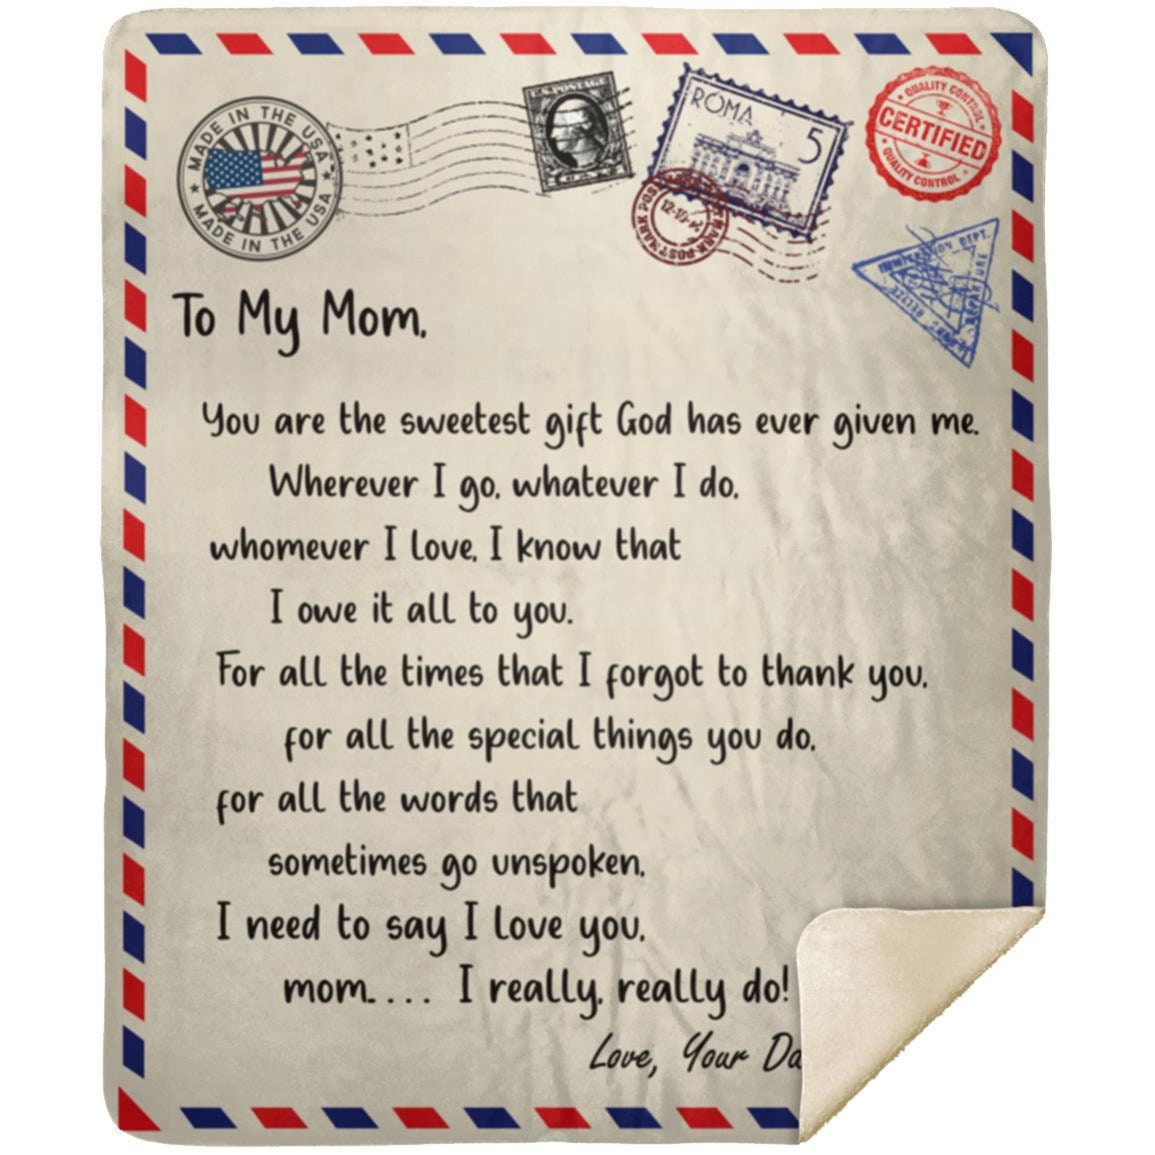 MADE IN THE USA
MADE IN THE USA
U.S. POSTAGE
ROMA
5
QUALITY CONTROL
CERTIFIED
QUALITY CONTROL
To My Mom,
You are the sweetest gift God has ever given me.
Wherever I go, whatever I do,
whomever I love, I know that
I owe it all to you.
For all the times that I forgot to thank you,
for all the special things you do,
for all the words that
sometimes go unspoken,
I need to say I love you,
mom.... I really, really do!
Love, Your Da